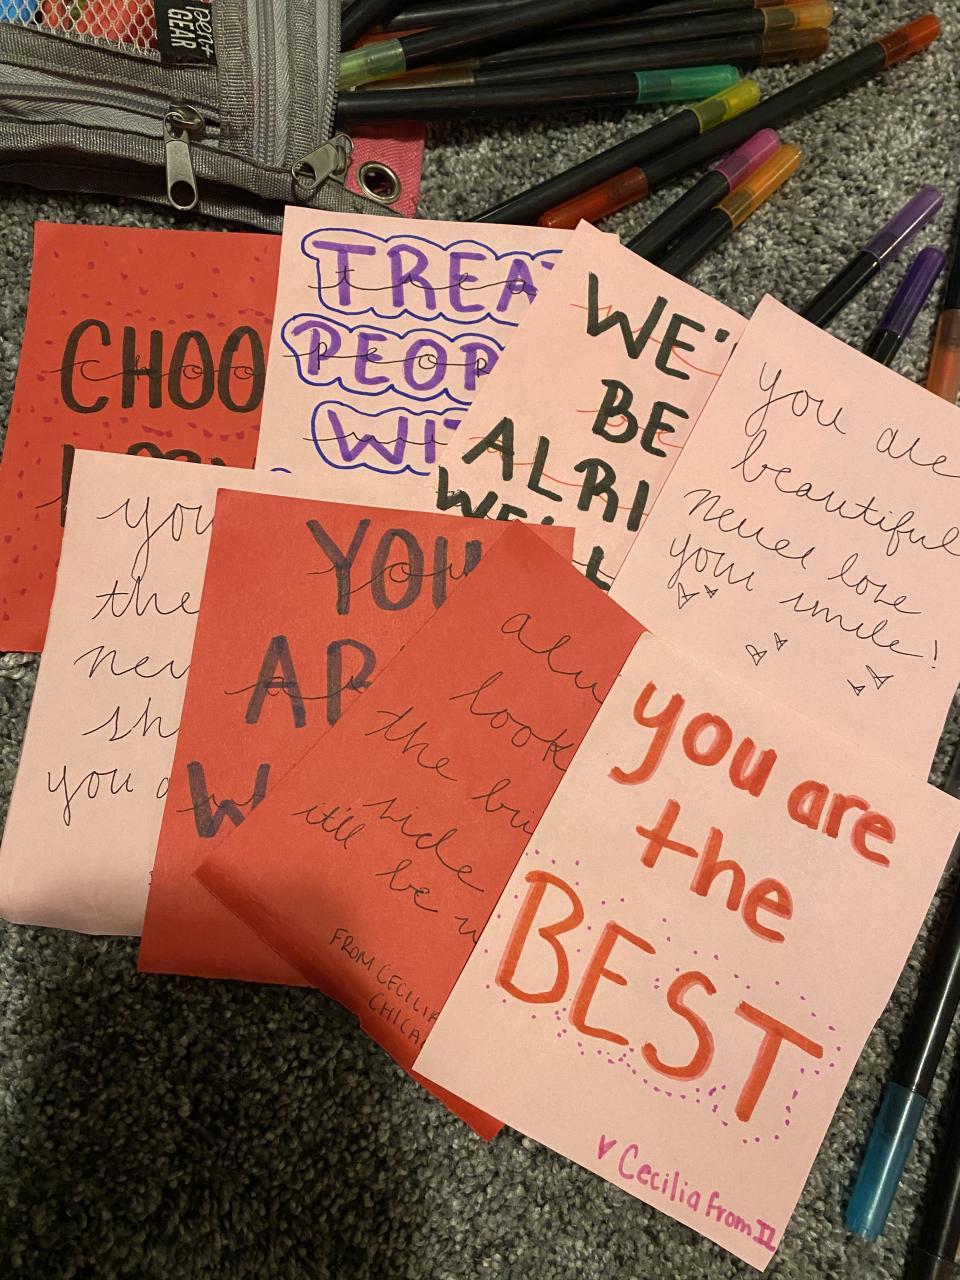 pen+
GEAR
CHOO
TREA
trea
PEOP
peop
WIT
WE'
BE
ALRI
WE'LL
you are
beautiful
never lose
your smile!
you
the
nev
sh
you a
YOU
you
AR
W
alw
look
the bri
side
it'll
be w
FROM CECILIA
CHICA
you are
the
BEST
Cecilia from IL